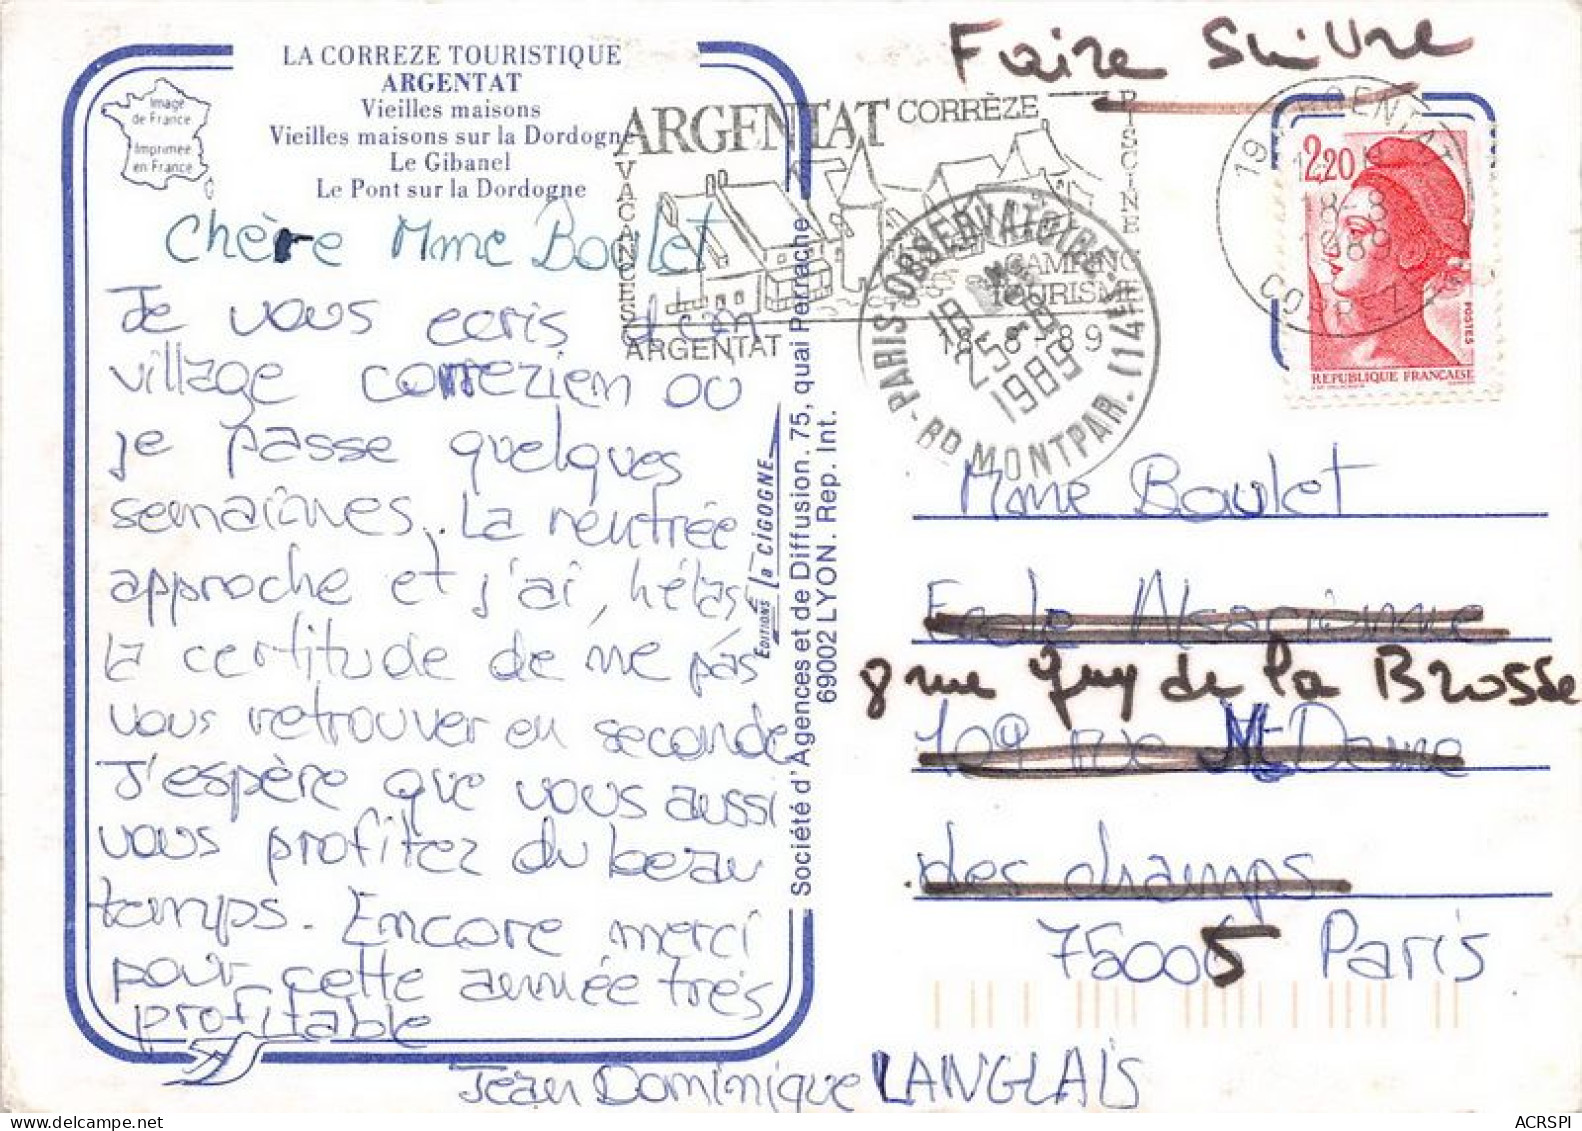 LA CORREZE TOURISTIQUE
ARGENTAT
Vieilles maisons
Vieilles maisons sur la Dordogne
Le Gibanel
Le Pont sur la Dordogne
Image
de France
Imprimée
en France
Chère Mme Boulet
Je vous ecris d'un
village correzien ou
je passe quelques
semaines. La rentrée
approche et j'ai, hélas
la certitude de ne pas
vous retrouver en seconde
J'espère que vous aussi
vous profitez du beau
temps. Encore merci
pour cette année très
profitable
Jean Dominique LANGLAIS
EDITIONS La CIGOGNE
Société d'Agences et de Diffusion. 75, quai Perrache
69002 LYON. Rep. Int.
ARGENTAT CORRÈZE
VACANCES
PISCINE
CAMPING
TOURISME
ARGENTAT
18-8-89
PARIS-OBSERVATOIRE-(14E)
18 H
25-8
1989
BD MONTPAR.
Faire Suivre
19 ARGENTAT
18-8
1989
CORREZE
2,20
POSTES
REPUBLIQUE FRANÇAISE
Mme Boulet
Ecole Alsacienne
8 rue Guy de la Brosse
109 rue Nt Dame
des champs
75005 Paris
ACRSPI